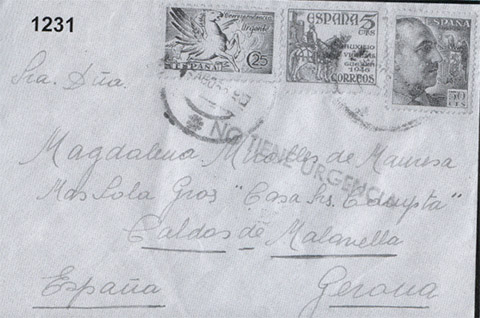 1231
Correspondencia
Urgente
ESPAÑA 25
ESPAÑA 5
CTS
AUXILIO
VICTIMAS
GUERRA
1946
CORREOS
ESPAÑA
50
CTS
NO TIENE URGENCIA
Sra. Dña.
Magdalena de Manresa
Mas Sola Gros "Casa Srs.
Caldas de Malavella
España Gerona